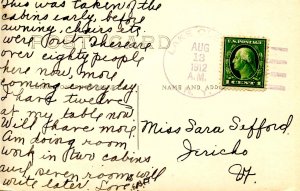 This was taken of the
cabins early, before
awning, chairs etc
were out. There are
over eighty people
here now, more
coming every day.
I have twelve
at my table now
Will have more.
Am doing room
work in two cabins
and seven rooms. Will
write later. Love
POST CARD
AUG
18
1912
A.M.
U.S. POSTAGE
NAME AND ADD
Miss Sara Sefford,
Jericho
Vt.